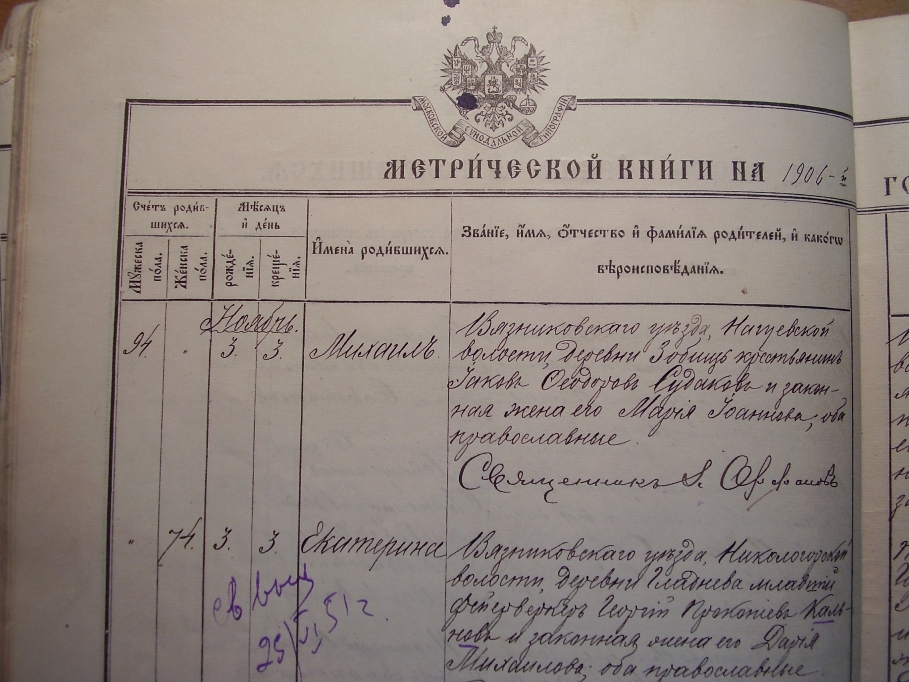 МОСКОВСКОЙ СѴНОДАЛЬНОЙ ТИПОГРАФІИ
МЕТРИ́ЧЕСКОЙ КНИ́ГИ НА 1906-й
ГО
Сче́тъ роди́в-
шихся.
Мѣ́сяцъ
и҆ де́нь
Мꙋ́жеска
по́ла.
Же́нска
по́ла.
рожде́-
нїѧ.
креще́-
нїѧ.
И҆мена̀ роди́вшихся.
Зва́нїе, и҆́мѧ, ѻ҆́тчество и҆ фами́лїѧ роди́телей, и҆ како́гѡ
вѣроисповѣ́данїѧ.
Ноябрь.
94. 3. 3. Михаилъ.
Вязниковскаго уѣзда, Нагуевской
волости, деревни Зобищъ крестьянинъ
Іаковъ Ѳеодоровъ Судаковъ и закон-
ная жена его Марія Іоаннова, оба
православные.
Священникъ
" 74. 3. 3. Екатерина
Вязниковскаго уѣзда, Никологорской
волости, деревни Гляднева младшій
фейерверкеръ Георгій Прокопіевъ Каль-
новъ и законная жена его Дарія
Михаилова; оба православные
св выд
25/VI 51 г